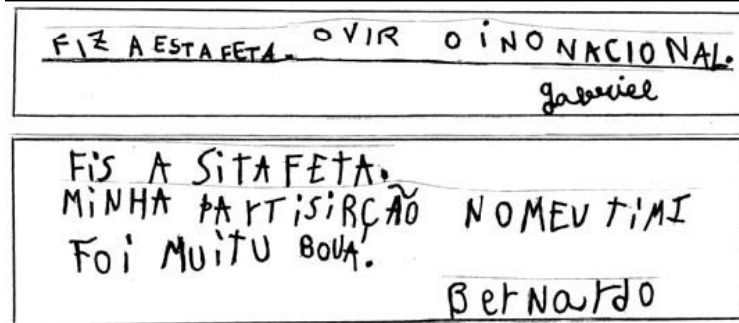 FIZ A ESTAFETA. OVIR O INO NACIONAL.
gabriel
FiS A SiTAFETA.
MiNHA PARTiSiRÇÃO NO MEU TiMI
FOi MUiTU BOUA.
BerNardo